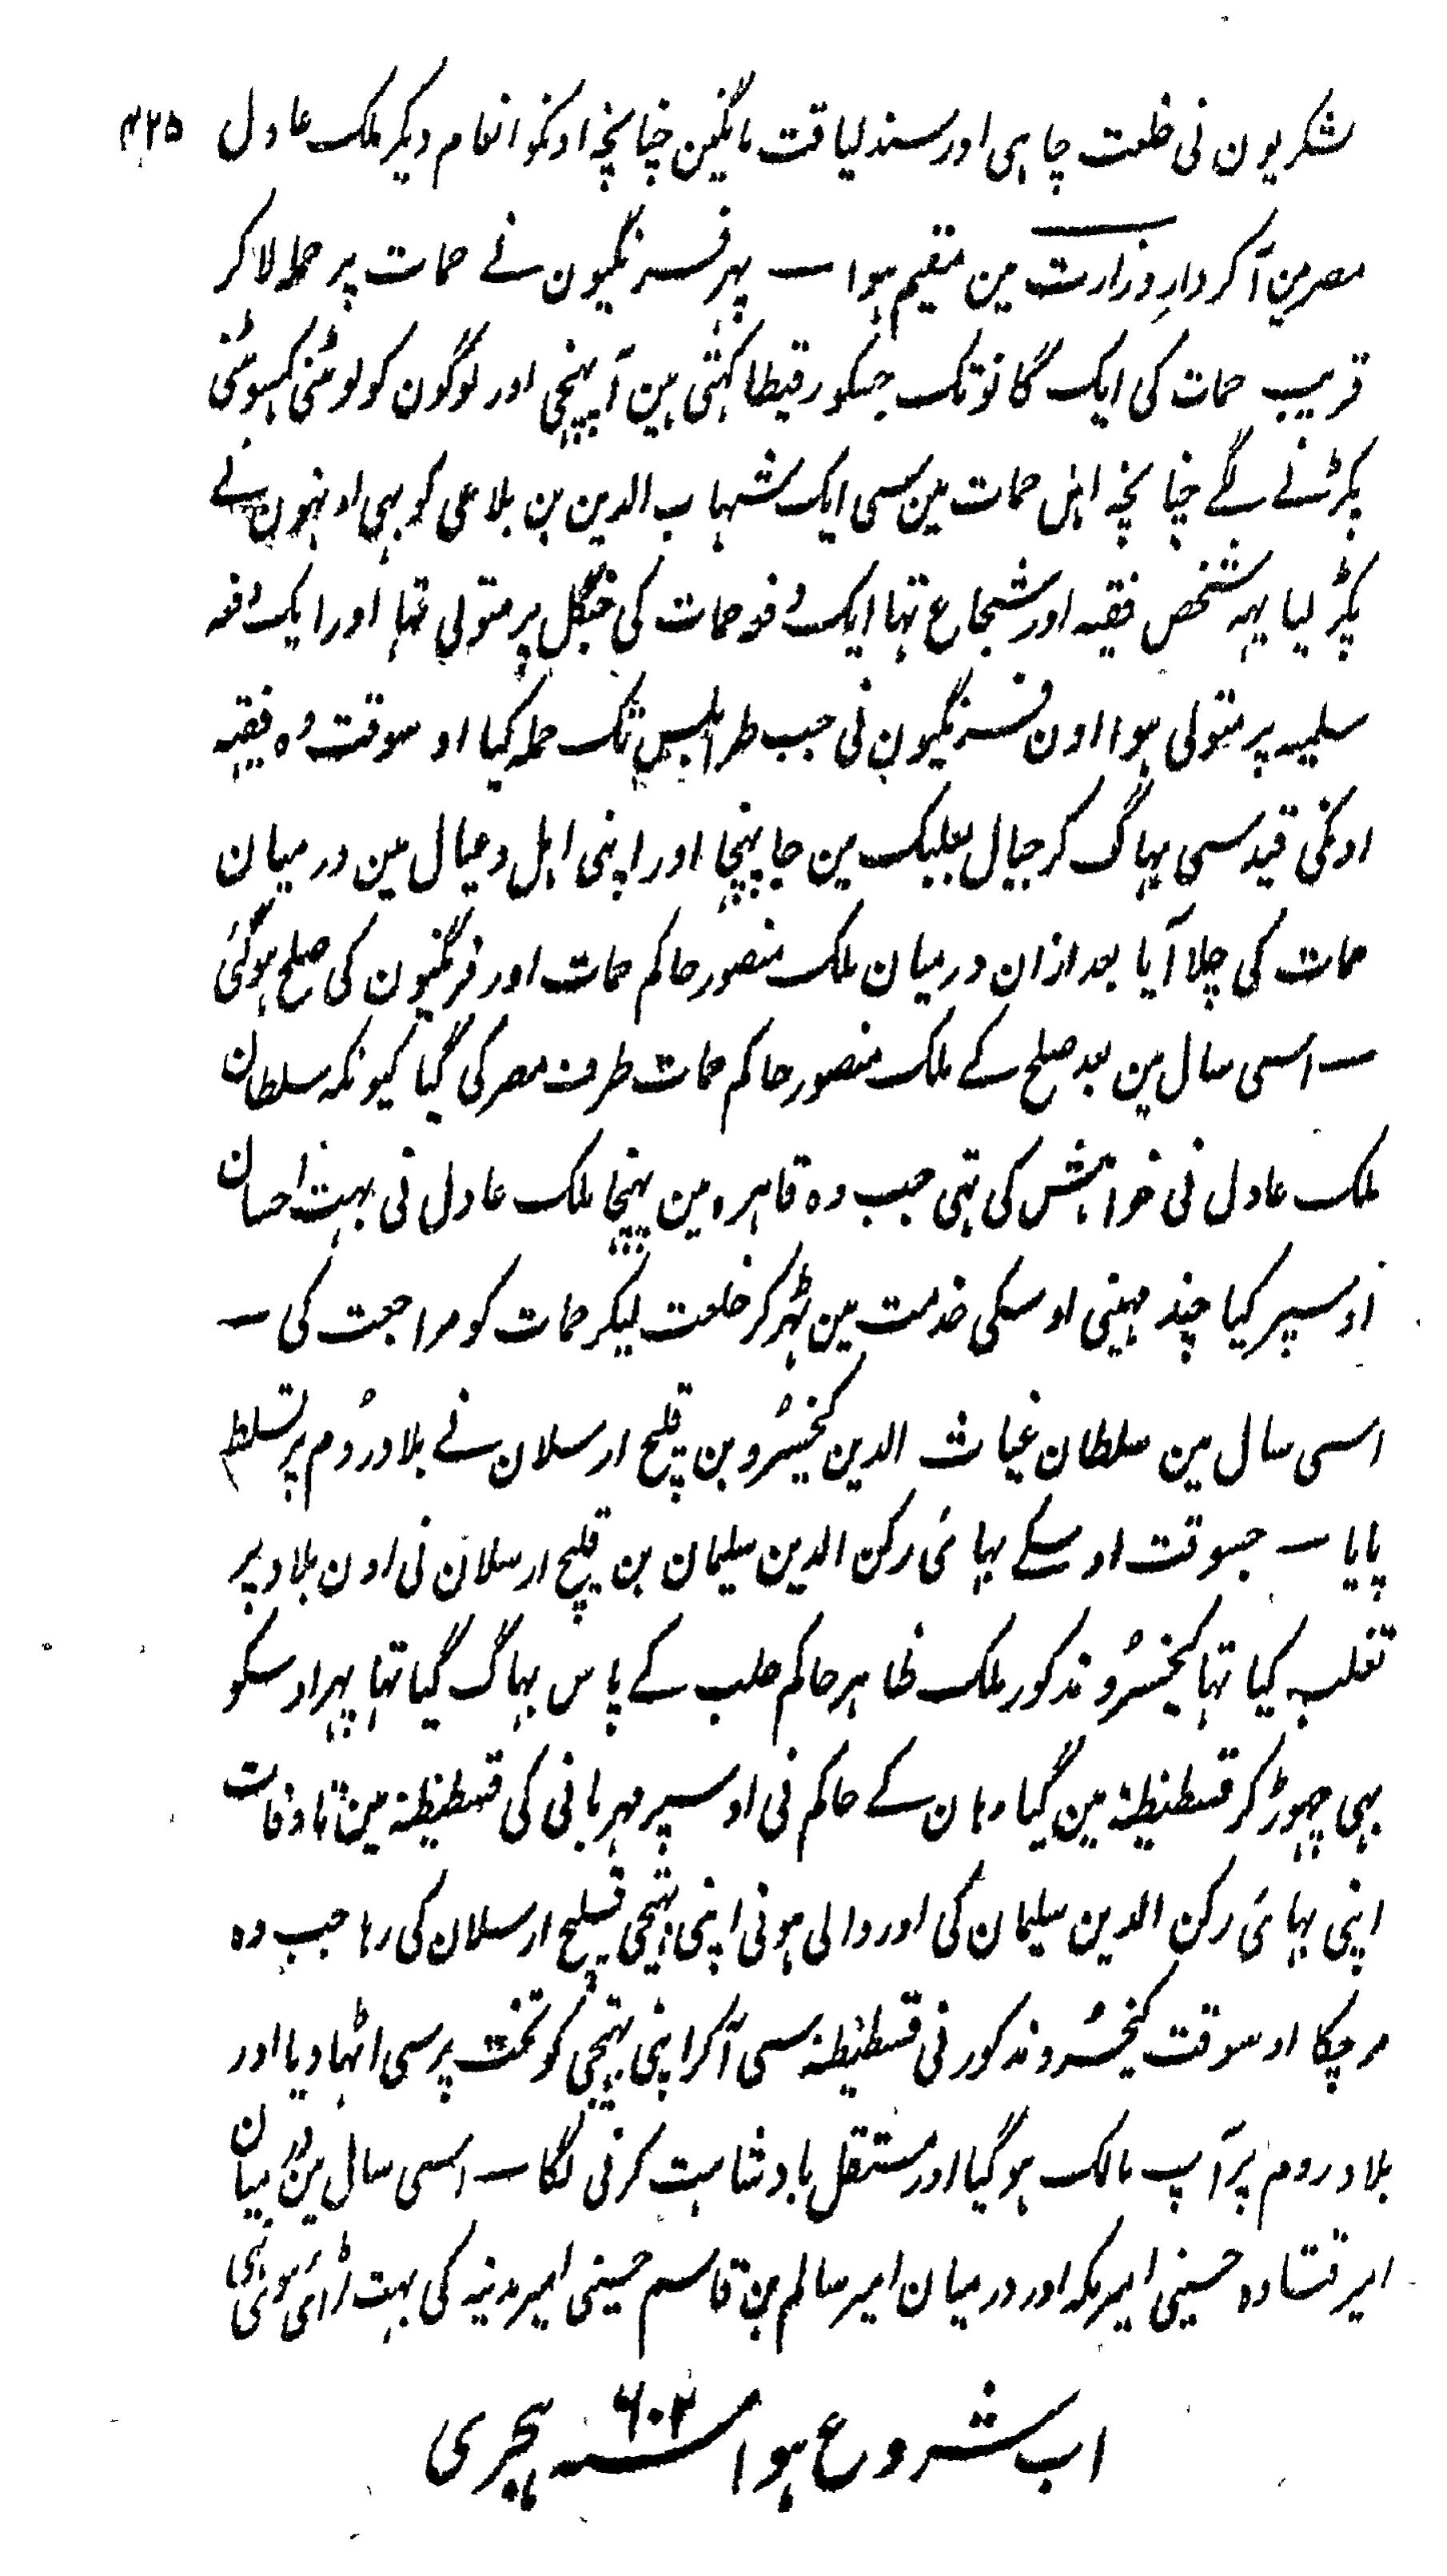 شکریون نی خلعت چاہی اور سند لیاقت مانگین چنانچہ اونکو انعام دیکر ملک عادل ۴۲۵
مصر مین آکر دارِ وزارت مین مقیم ہوا ــ پہر فرنگیون نے حمات پر حملہ لاکر
قریب حمات کی ایک گانو تک جسکو رقیطا کہتی ہین آپہنچی اور لوگون کو لوٹنی کہسوٹنی
پکڑنے لگے چنانچہ اہل حمات مین سی ایک شہاب الدین بن بلاعی کو بہی اونہون نے
پکڑ لیا یہہ شخص فقیہ اور شجاع تہا ایک دفعہ حمات کی جنگل پر متولی تہا اور ایک دفعہ
سلمیہ پر متولی ہوا اون فرنگیون نی جب طرابلس تک حملہ کیا اوسوقت وہ فقیہ
اونکی قید سی بہاگ کر جبال بعلبک مین جا پہنچا اور اپنی اہل و عیال مین درمیان
حمات کی چلا آیا بعد ازان درمیان ملک منصور حاکم حمات اور فرنگیون کی صلح ہوگئی
ــ اسی سال مین بعد صلح کے ملک منصور حاکم حمات طرف مصر کی گیا کیونکہ سلطان
ملک عادل نی خواہش کی تہی جب وہ قاہرہ مین پہنچا ملک عادل نی بہت احسان
اوسپر کیا چند مہینی اوسکی خدمت مین ٹہر کر خلعت لیکر حمات کو مراجعت کی ــ
اسی سال مین سلطان غیاث الدین کیخسرُو بن قلیج ارسلان نے بلاد رُوم پر تسلط
پایا ــ جسوقت اوسکے بہائی رکن الدین سلیمان بن قلیج ارسلان نی اون بلاد پر
تغلب کیا تہا کیخسرُو مذکور ملک ظاہر حاکم حلب کے پاس بہاگ گیا تہا پہر اوسکو
بہی چہوڑ کر قسطنطنیہ مین گیا وہان کے حاکم نی اوسپر مہربانی کی قسطنطنیہ مین تا وفات
اپنی بہائی رکن الدین سلیمان کی اور والی ہونی اپنی بہتیجی قلیج ارسلان کی رہا جب وہ
مر چکا اوسوقت کیخسرُو مذکور نی قسطنطنیہ سی آکر اپنی بہتیجی کو تخت پر سی اٹہا دیا اور
بلاد روم پر آپ مالک ہوگیا اور مستقل بادشاہت کرنی لگا ــ اسی سال مین درمیان
امیر قتادہ حسینی امیر مکہ اور درمیان امیر سالم بن قاسم حسینی امیر مدینہ کی بہت لڑائی ہوئی تہی
اب شروع ہوا سنہ ۶۰۲ ہجری